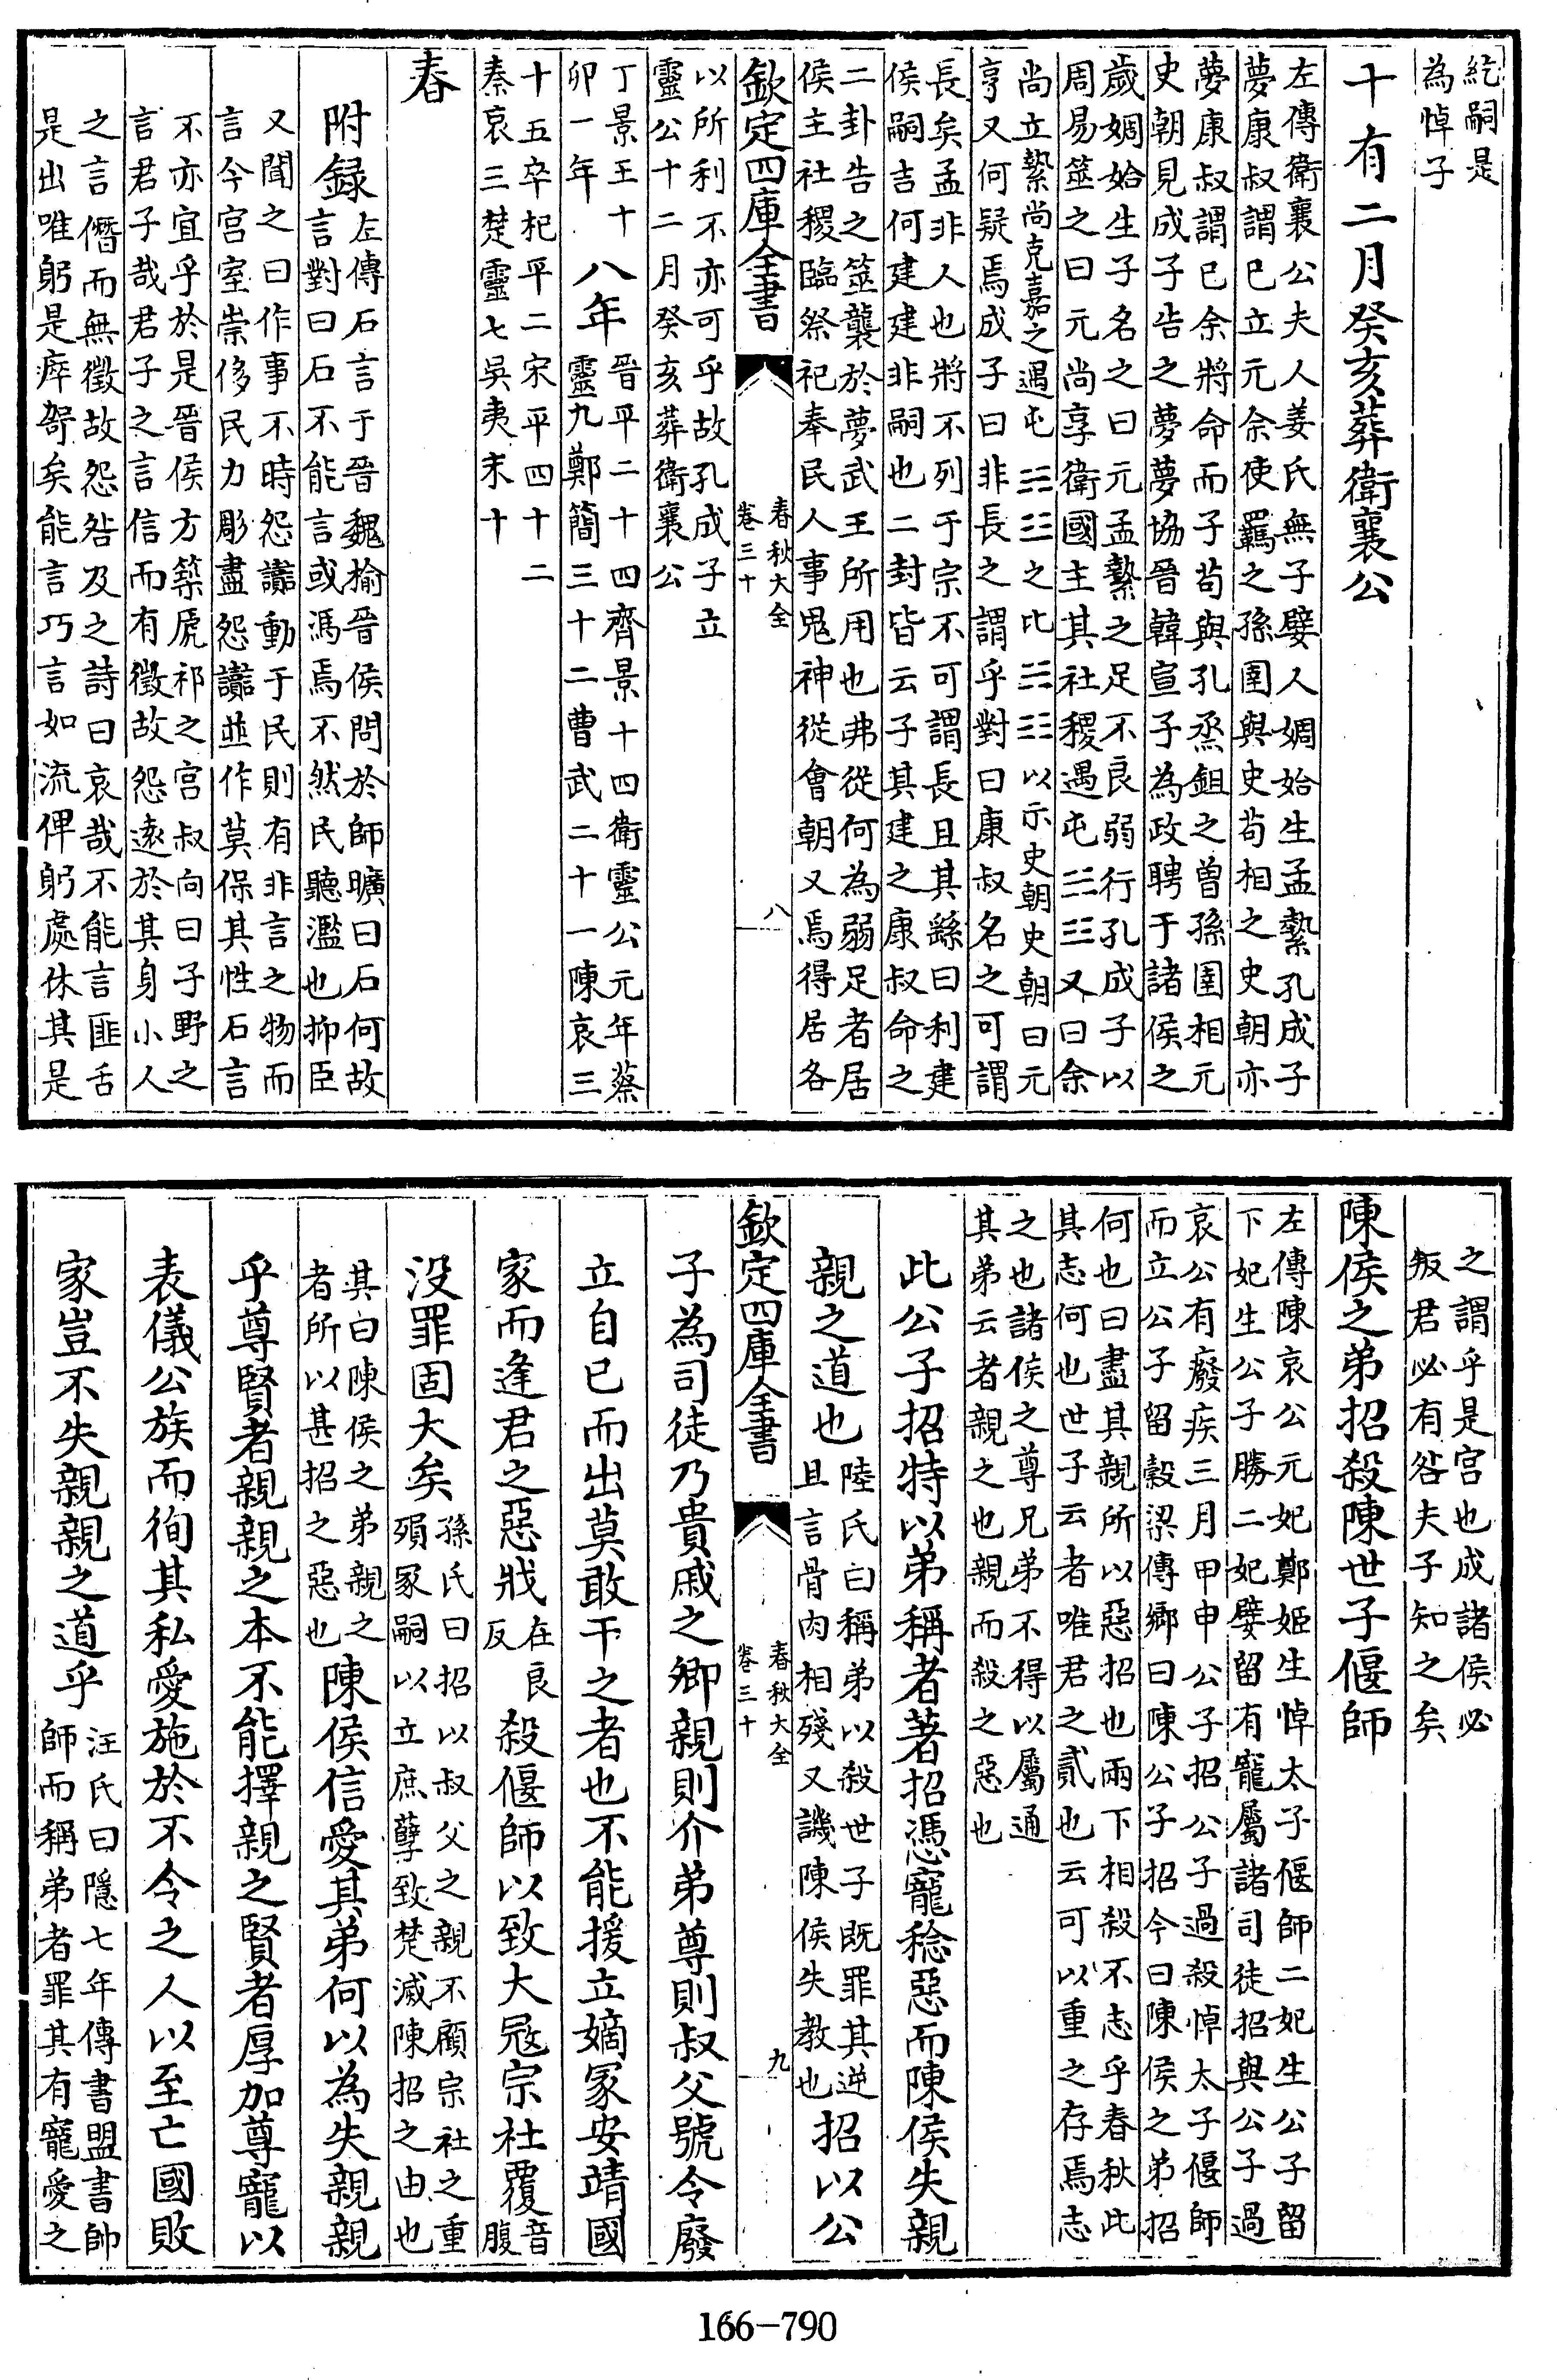 紇嗣是
為悼子
十有二月癸亥葬衛襄公
左傳衛襄公夫人姜氏無子嬖人婤姶生孟縶孔成子
夢康叔謂已立元余使羈之孫圉與史苟相之史朝亦
夢康叔謂已余將命而子苟與孔烝鉏之曾孫圉相元
史朝見成子告之夢夢協晉韓宣子為政聘于諸侯之
歲婤姶生子名之曰元孟縶之足不良弱行孔成子以
周易筮之曰元尚享衛國主其社稷遇屯䷂又曰余
尚立縶尚克嘉之遇屯䷂之比䷇以示史朝史朝曰元
亨又何疑焉成子曰非長之謂乎對曰康叔名之可謂
長矣孟非人也將不列于宗不可謂長且其繇曰利建
侯嗣吉何建建非嗣也二封皆云子其建之康叔命之
二卦告之筮襲於夢武王所用也弗從何為弱足者居
侯主社稷臨祭祀奉民人事鬼神從會朝又焉得居各
欽定四庫全書
春秋大全
卷三十
八
以所利不亦可乎故孔成子立
靈公十二月癸亥葬衛襄公
丁景王十
卯一年
八年
晉平二十四齊景十四衛靈公元年蔡
靈九鄭簡三十二曹武二十一陳哀三
十五卒杞平二宋平四十二
秦哀三楚靈七吳夷末十
春
附録
左傳石言于晉魏榆晉侯問於師曠曰石何故
言對曰石不能言或馮焉不然民聽濫也抑臣
又聞之曰作事不時怨讟動于民則有非言之物而
言今宫室崇侈民力彫盡怨讟並作莫保其性石言
不亦宜乎於是晉侯方築虒祁之宫叔向曰子野之
言君子哉君子之言信而有徵故怨遠於其身小人
之言僭而無徵故怨咎及之詩曰哀哉不能言匪舌
是出唯躬是瘁哿矣能言巧言如流俾躬處休其是
之謂乎是宫也成諸侯必
叛君必有咎夫子知之矣
陳侯之弟招殺陳世子偃師
左傳陳哀公元妃鄭姬生悼太子偃師二妃生公子留
下妃生公子勝二妃嬖留有寵屬諸司徒招與公子過
哀公有廢疾三月甲申公子招公子過殺悼太子偃師
而立公子留穀梁傳鄉曰陳公子招今曰陳侯之弟招
何也曰盡其親所以惡招也兩下相殺不志乎春秋此
其志何也世子云者唯君之貳也云可以重之存焉志
之也諸侯之尊兄弟不得以屬通
其弟云者親之也親而殺之惡也
此公子招特以弟稱者著招馮寵稔惡而陳侯失親
親之道也
陸氏曰稱弟以殺世子既罪其逆
且言骨肉相殘又譏陳侯失教也
招以公
欽定四庫全書
春秋大全
卷三十
九
子為司徒乃貴戚之卿親則介弟尊則叔父號令廢
立自已而出莫敢干之者也不能援立嫡冢安靖國
家而逢君之惡戕
在良
反
殺偃師以致大冦宗社覆
音
腹
没罪固大矣
孫氏曰招以叔父之親不顧宗社之重
殞冢嗣以立庶孽致楚滅陳招之由也
其曰陳侯之弟親之
者所以甚招之惡也
陳侯信愛其弟何以為失親親
乎尊賢者親親之本不能擇親之賢者厚加尊寵以
表儀公族而徇其私愛施於不令之人以至亡國敗
家豈不失親親之道乎
汪氏曰隱七年傳書盟書帥
師而稱弟者罪其有寵愛之
166-790